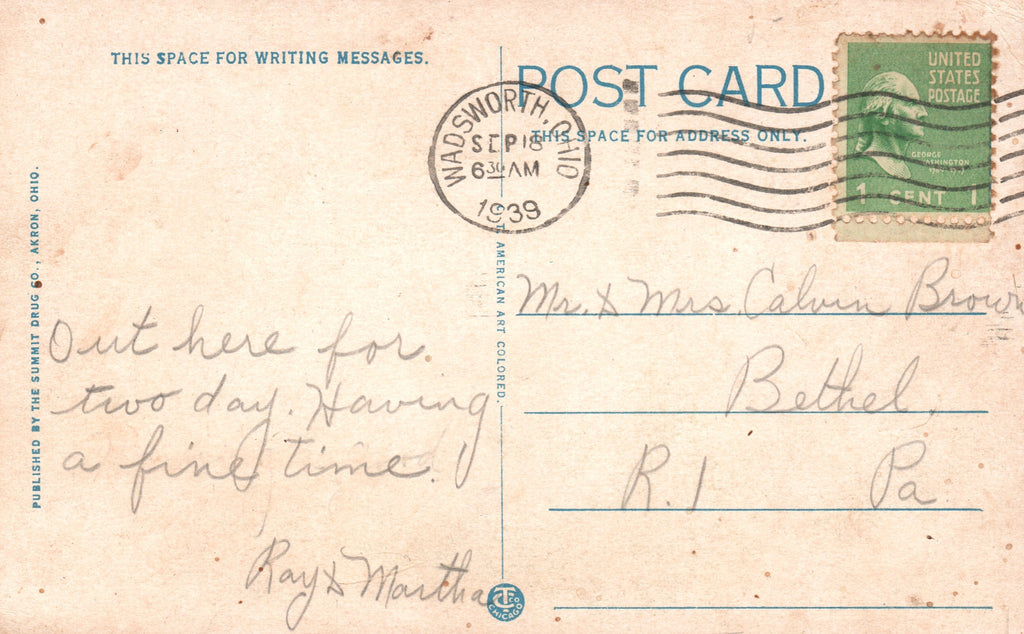 THIS SPACE FOR WRITING MESSAGES.
POST CARD
THIS SPACE FOR ADDRESS ONLY.
WADSWORTH, OHIO
SEP 18
6 30 AM
1939
UNITED
STATES
POSTAGE
GEORGE
WASHINGTON
1 CENT 1
PUBLISHED BY THE SUMMIT DRUG CO., AKRON, OHIO.
AMERICAN ART COLORED.
Out here for
two day. Having
a fine time.
Ray & Martha
Mr. & Mrs. Calvin Brown
Bethel.
R. 1 Pa
CHICAGO